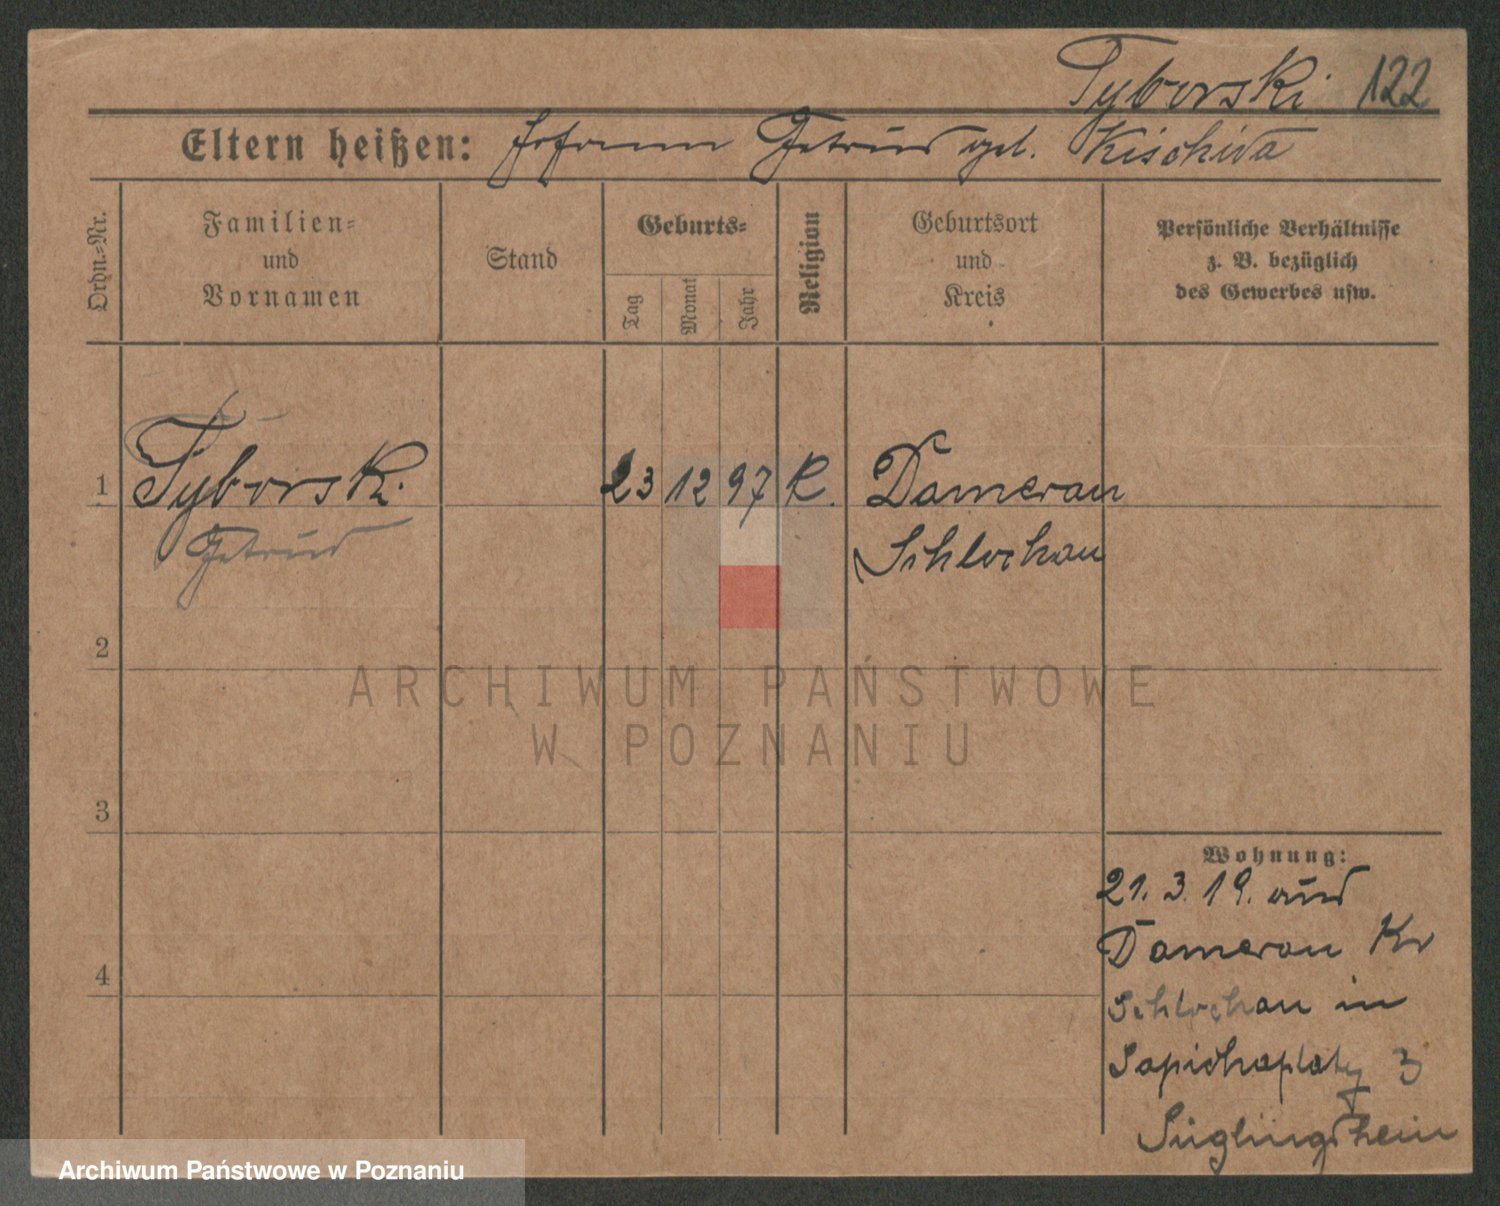 Tyborski 122
Eltern heißen: Johann Getrud geb. Kischiva
Ordn.=Nr.
Familien=
und
Vornamen
Stand
Geburts=
Tag
Monat
Jahr
Religion
Geburtsort
und
Kreis
Persönliche Verhältnisse
z. B. bezüglich
des Gewerbes usw.
1 Tyborski 23 12 97 K. Damerau
Getrud Schlochau
2
3
4
Wohnung:
21. 3. 19. aus
Damerau Kr
Schlochau in
Sapiehaplatz 3
Säuglingsheim
ARCHIWUM PAŃSTWOWE
W POZNANIU
Archiwum Państwowe w Poznaniu